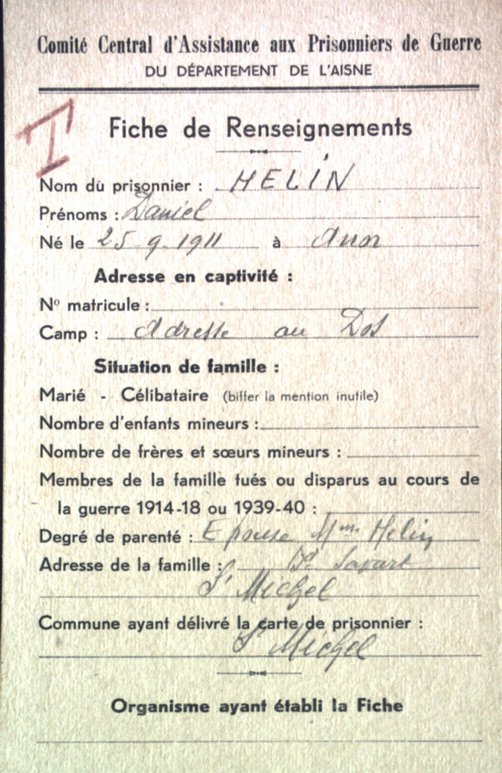 Comité Central d'Assistance aux Prisonniers de Guerre
DU DÉPARTEMENT DE L'AISNE
I
Fiche de Renseignements
Nom du prisonnier : HELIN
Prénoms : Daniel
Né le 25 9 1911 à Anor
Adresse en captivité :
No matricule :
Camp : Adresse au Dos
Situation de famille :
Marié - Célibataire (biffer la mention inutile)
Nombre d'enfants mineurs :
Nombre de frères et sœurs mineurs :
Membres de la famille tués ou disparus au cours de
la guerre 1914-18 ou 1939-40 :
Degré de parenté : Epouse Mme Helin
Adresse de la famille : Bd Savart
St Michel
Commune ayant délivré la carte de prisonnier :
St Michel
Organisme ayant établi la Fiche